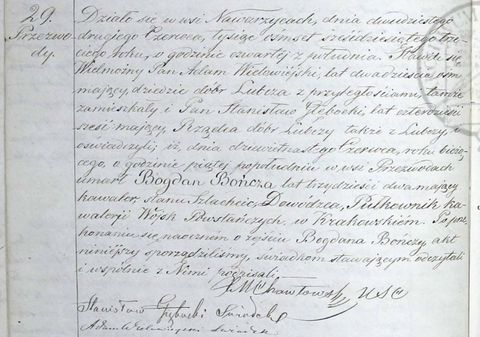 29.
Przezwo-
dy.
Działo się w wsi Nawarzycach, dnia dwudziestego
drugiego Czerwca, tysiąc ośmset sześćdziesiątego trze-
ciego roku, o godzinie czwartej z południa. Stawił się
Wielmożny Pan Adam Wielowiejski, lat dwadzieścia ośm
mający, dziedzic dóbr Lubcza z przyległościami, tamże
zamieszkały i Pan Stanisław Głębocki, lat czterdzieści
sześć mający, Rządca dóbr Lubczy także z Lubczy, i
oświadczyli; iż, dnia dziewiętnastego Czerwca, roku bieżą-
cego, o godzinie piątej popołudniu w wsi Przezwodach
umarł Bogdan Bończa lat trzydzieści dwa mający
kawaler, stanu Szlachcic, Dowódzca, Pułkownik ka-
waleryi Wojsk Powstańczych, w Krakowskiém. Po prze-
konaniu się naocznem o zejściu Bogdana Bończy akt
niniejszy sporządziliśmy, świadkom stawającym odczytali
i wspólnie z Nimi podpisali.
USC
Stanisław Głębocki Świadek
Adam Wielowiejski Świadek